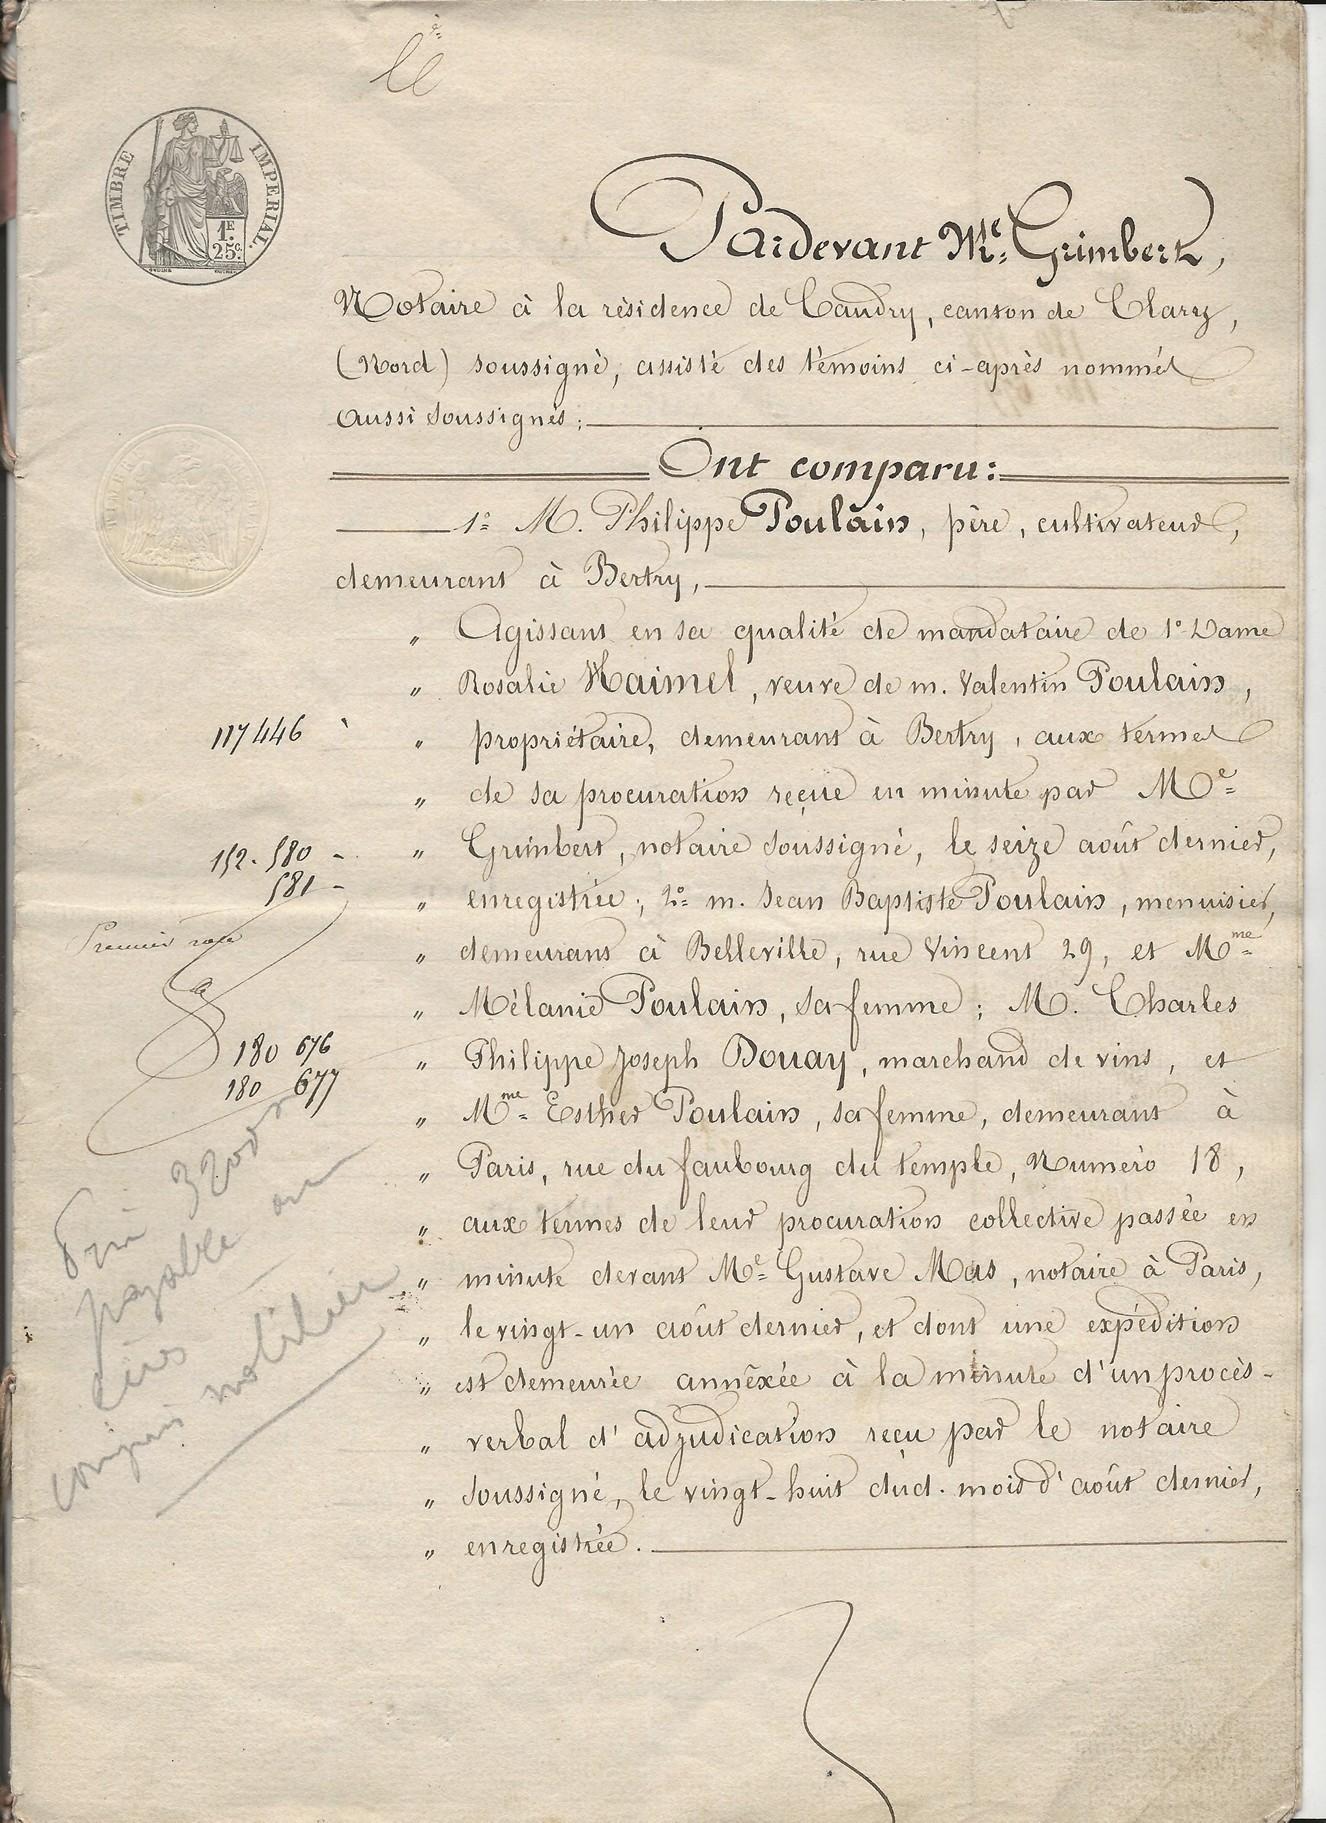 TIMBRE IMPERIAL.
1E.
25c.
Pardevant Me. Grimbert,
Notaire à la résidence de Caudry, canton de Clary,
(Nord) soussigné, assisté des témoins ci-après nommés
aussi soussignés;
Ont comparu:
1º M. Philippe Poulain, père, cultivateur,
demeurant à Bertry,
" Agissant en sa qualité de mandataire de 1º Dame
" Rosalie Haimel, veuve de m. Valentin Poulain,
117446
" propriétaire, demeurant à Bertry, aux termes
" de sa procuration reçue en minute par Me
152. 580 -
" Grimbert, notaire soussigné, le seize août dernier,
581 -
" enregistrée; 2º m. Jean Baptiste Poulain, menuisier,
Premier
" demeurant à Belleville, rue Vincent 29, et Mme
" Mélanie Poulain, sa femme; M. Charles
180 676
" Philippe Joseph Douay, marchand de vins, et
180 677
" Mme Esther Poulain, sa femme, demeurant à
" Paris, rue du faubourg du temple, Numéro 18,
" aux termes de leur procuration collective passée en
" minute devant Me Gustave Mas, notaire à Paris,
" le vingt-un août dernier, et dont une expédition
" est demeurée annéxée à la minute d'un procès-
" verbal d'adjudication reçu par le notaire
" soussigné, le vingt-huit dud. mois d'août dernier,
" enregistrée.
3200
payable en
compris mobilier